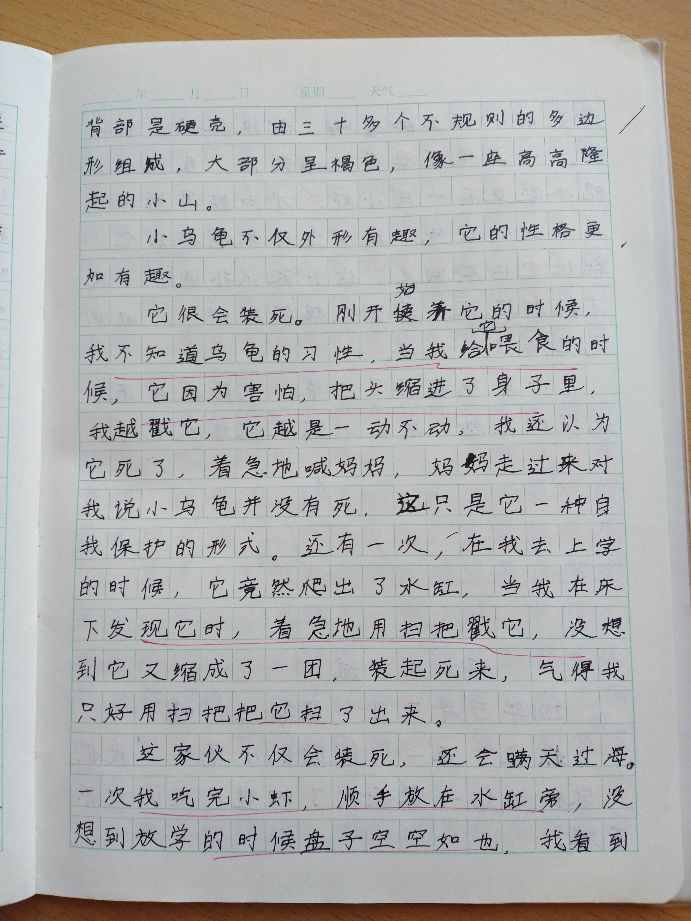 年 月 日 星期 天气
背部是硬壳，由三十多个不规则的多边
形组成，大部分呈褐色，像一座高高隆
起的小山。
小乌龟不仅外形有趣，它的性格更
加有趣。
它很会装死。刚开始养它的时候，
我不知道乌龟的习性，当我给它喂食的时
候，它因为害怕，把头缩进了身子里，
我越戳它，它越是一动不动。我还认为
它死了，着急地喊妈妈，妈妈走过来对
我说小乌龟并没有死，这只是它一种自
我保护的形式。还有一次，在我去上学
的时候，它竟然爬出了水缸，当我在床
下发现它时，着急地用扫把戳它，没想
到它又缩成了一团，装起死来，气得我
只好用扫把把它扫了出来。
这家伙不仅会装死，还会瞒天过海。
一次我吃完小虾，顺手放在水缸旁，没
想到放学的时候盘子空空如也，我看到